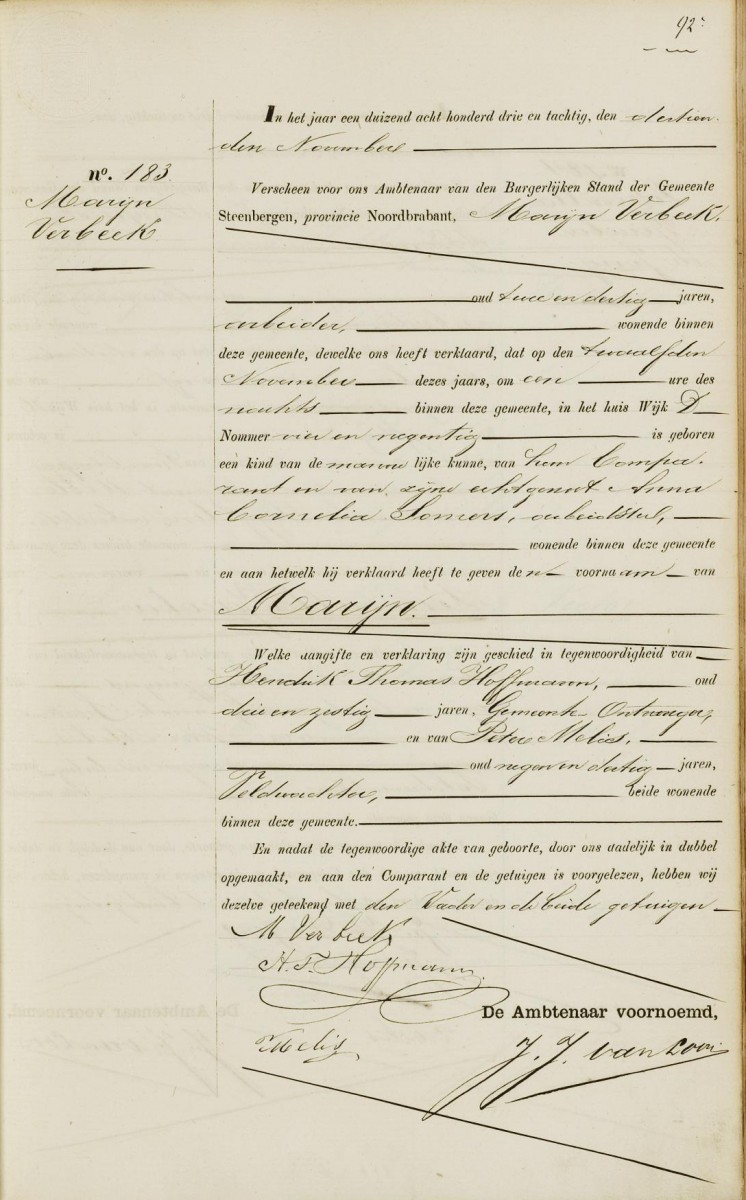 92
In het jaar een duizend acht honderd drie en tachtig, den dertien
den November
no. 183
Marijn
Verbeek
Verscheen voor ons Ambtenaar van den Burgerlijken Stand der Gemeente
Steenbergen, provincie Noordbrabant, Marijn Verbeek.
oud twee en dertig jaren,
arbeider, wonende binnen
deze gemeente, dewelke ons heeft verklaard, dat op den twaalfden
November dezes jaars, om een ure des
nachts binnen deze gemeente, in het huis Wijk D
Nommer vier en negentig is geboren
een kind van de manne lijke kunne, van hem Compa-
rant en van zijne echtgenoot Anna
Cornelia Somers, arbeidster,
wonende binnen deze gemeente
en aan hetwelk hij verklaard heeft te geven de n voorna am van
Marijn.
Welke aangifte en verklaring zijn geschied in tegenwoordigheid van
Hendrik Thomas Hoffmann, oud
drie en zestig jaren, Gemeente-Ontvanger,
en van Peter Melis,
oud negen en dertig jaren,
Veldwachter, beide wonende
binnen deze gemeente.
En nadat de tegenwoordige akte van geboorte, door ons dadelijk in dubbel
opgemaakt, en aan den Comparant en de getuigen is voorgelezen, hebben wij
dezelve geteekend met den Vader en de beide getuigen
M Verbeek
H.T. Hoffmann
De Ambtenaar voornoemd,
PMelis
J. J. van Loon